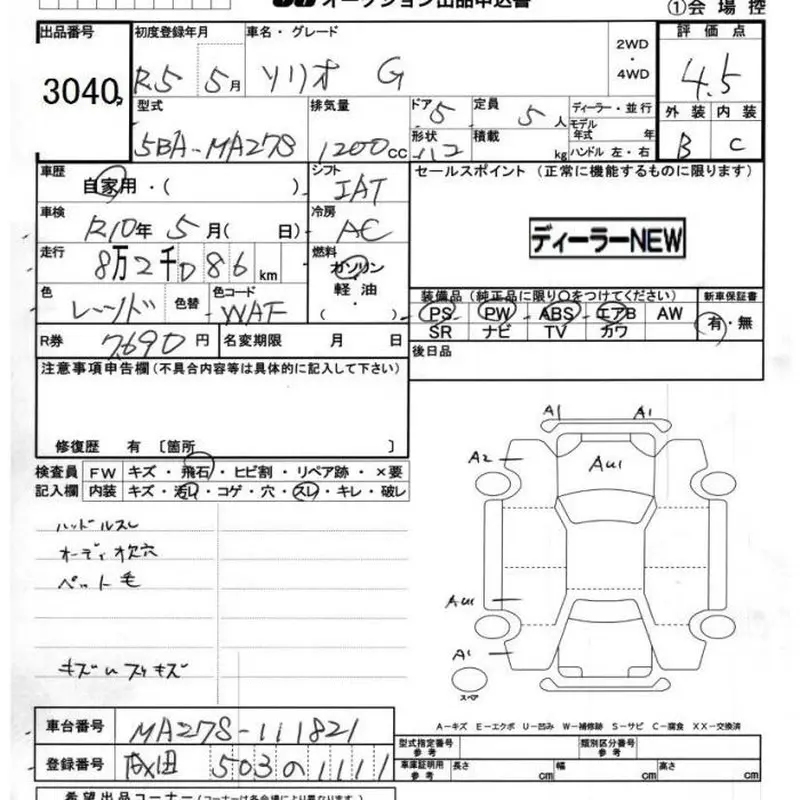 オークション出品申込書
①会場控
出品番号
3040
初度登録年月
R5 5月
車名・グレード
ソリオ G
2WD
・
4WD
評価点
4.5
型式
5BA-MA27S
排気量
1200cc
ドア 5
形状
定員 5人
積載 kg
ディーラー・並行
モデル年式 年
ハンドル 左・右
外装 内装
B C
車歴
自家用・( )
シフト
IAT
セールスポイント (正常に機能するものに限ります)
ディーラーNEW
車検
R10年 5月( 日)
冷房
AC
走行
8万2千086km
燃料
ガソリン
・
軽油
( )
色
色替
色コード
装備品(純正品に限り○をつけてください)
PS PW ABS エアB AW
SR ナビ TV カワ
新車保証書
有・無
R券 7,690円
名変期限 月 日
後日品
注意事項申告欄(不具合内容等は具体的に記入して下さい)
修復歴 有 〔箇所 〕
検査員記入欄
FW キズ・飛石・ヒビ割・リペア跡・×要
内装 キズ・汚レ・コゲ・穴・スレ・キレ・破レ
ハンドルスレ
オーディオ欠穴
ペット毛
キズ
A1 A1
A2
AU1
AU1
A1
スペア
A-キズ E-エクボ U-凹み W-補修跡 S-サビ C-腐食 XX-交換済
車台番号 MA27S-111821
登録番号 成田 503 の 1111
型式指定番号 参考
類別区分番号 参考
車庫証明用 参考
長さ cm 幅 cm 高さ cm
希望出品コーナー(コーナーは各会場により異なります)